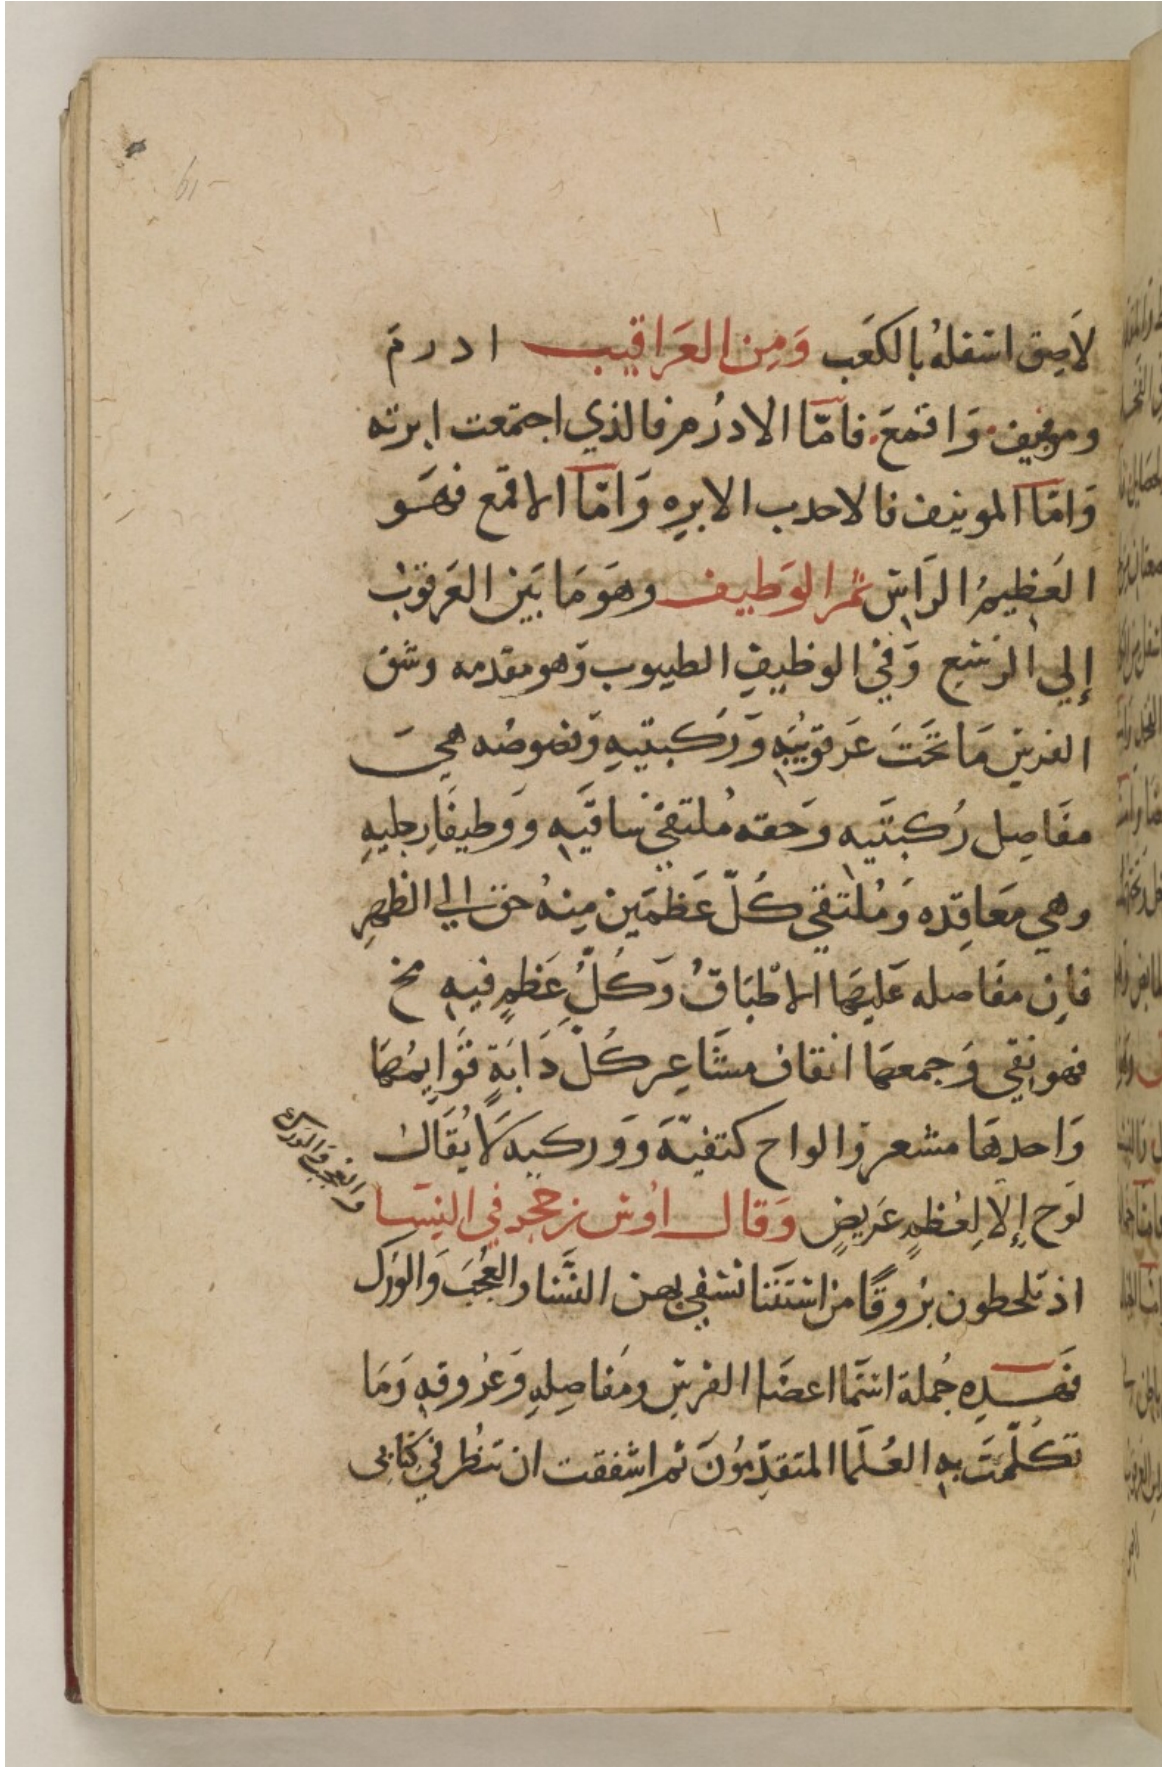 لاَصِق اسفلهُ بالكَعَب وَمِن العَرَاقيب ادرمَ
ومونيف وَاقمَعَ فامّا الادرُم فالذي اجتمعت ابرته
وَامّا المونيف فالاحدب الابرِه وَامّا الاقمع فهَو
العَظِيمُ الرَاسِ ثمُ الوَظِيف وهَوَمَا بَيَن العَرقوب
إلي الرسَغ وَفي الوظيفِ الظنبوب وَهو مقدمه وشق
الفرسِ مَا تَحَتَ عَرقوبَيَهِ وَرَكبتيهِ وَفصُوصُه هيَ
مفَاصِل رُكبَتَيه وَحقه مُلتقي سَاقَيَهِ وَوَظيفَا رِجليهِ
وهي مَعَاقِده وَمُلتقي كُلّ عَظمَين مِنهُ حق الي الظهرِ
فاِن مفَاصله عَليهَا الاطبَاقُ وَكُلُّ عَظمٍ فيهِ مخ
فهو نقي وَجمعهَا انقاء مشَاعِر كُلّ دَابَةٍ قَوَايمُهَا
وَاحدهَا مشعر وَالواح كتفيَه وَوَركيه لاَ يُقَال
لَوح إلاَ لِعَظمٍ عَريضٍ وَقال اوس بن حجر في النسَا
والعجب والورك
اذ تلحطون بُرُوقًا من اسنتَنا نشفي بهن النَّسَا وَالعُجبَ وَالوَرك
فهَذِه جُملة اسَمَا اعضَا الفرسِ ومَفاصِلهِ وَعُروقهِ وَمَا
تكلّمَتَ بهِ العُلمَا المتقدِّموُنَ ثم اشفقت ان تنظُر في كتَابي